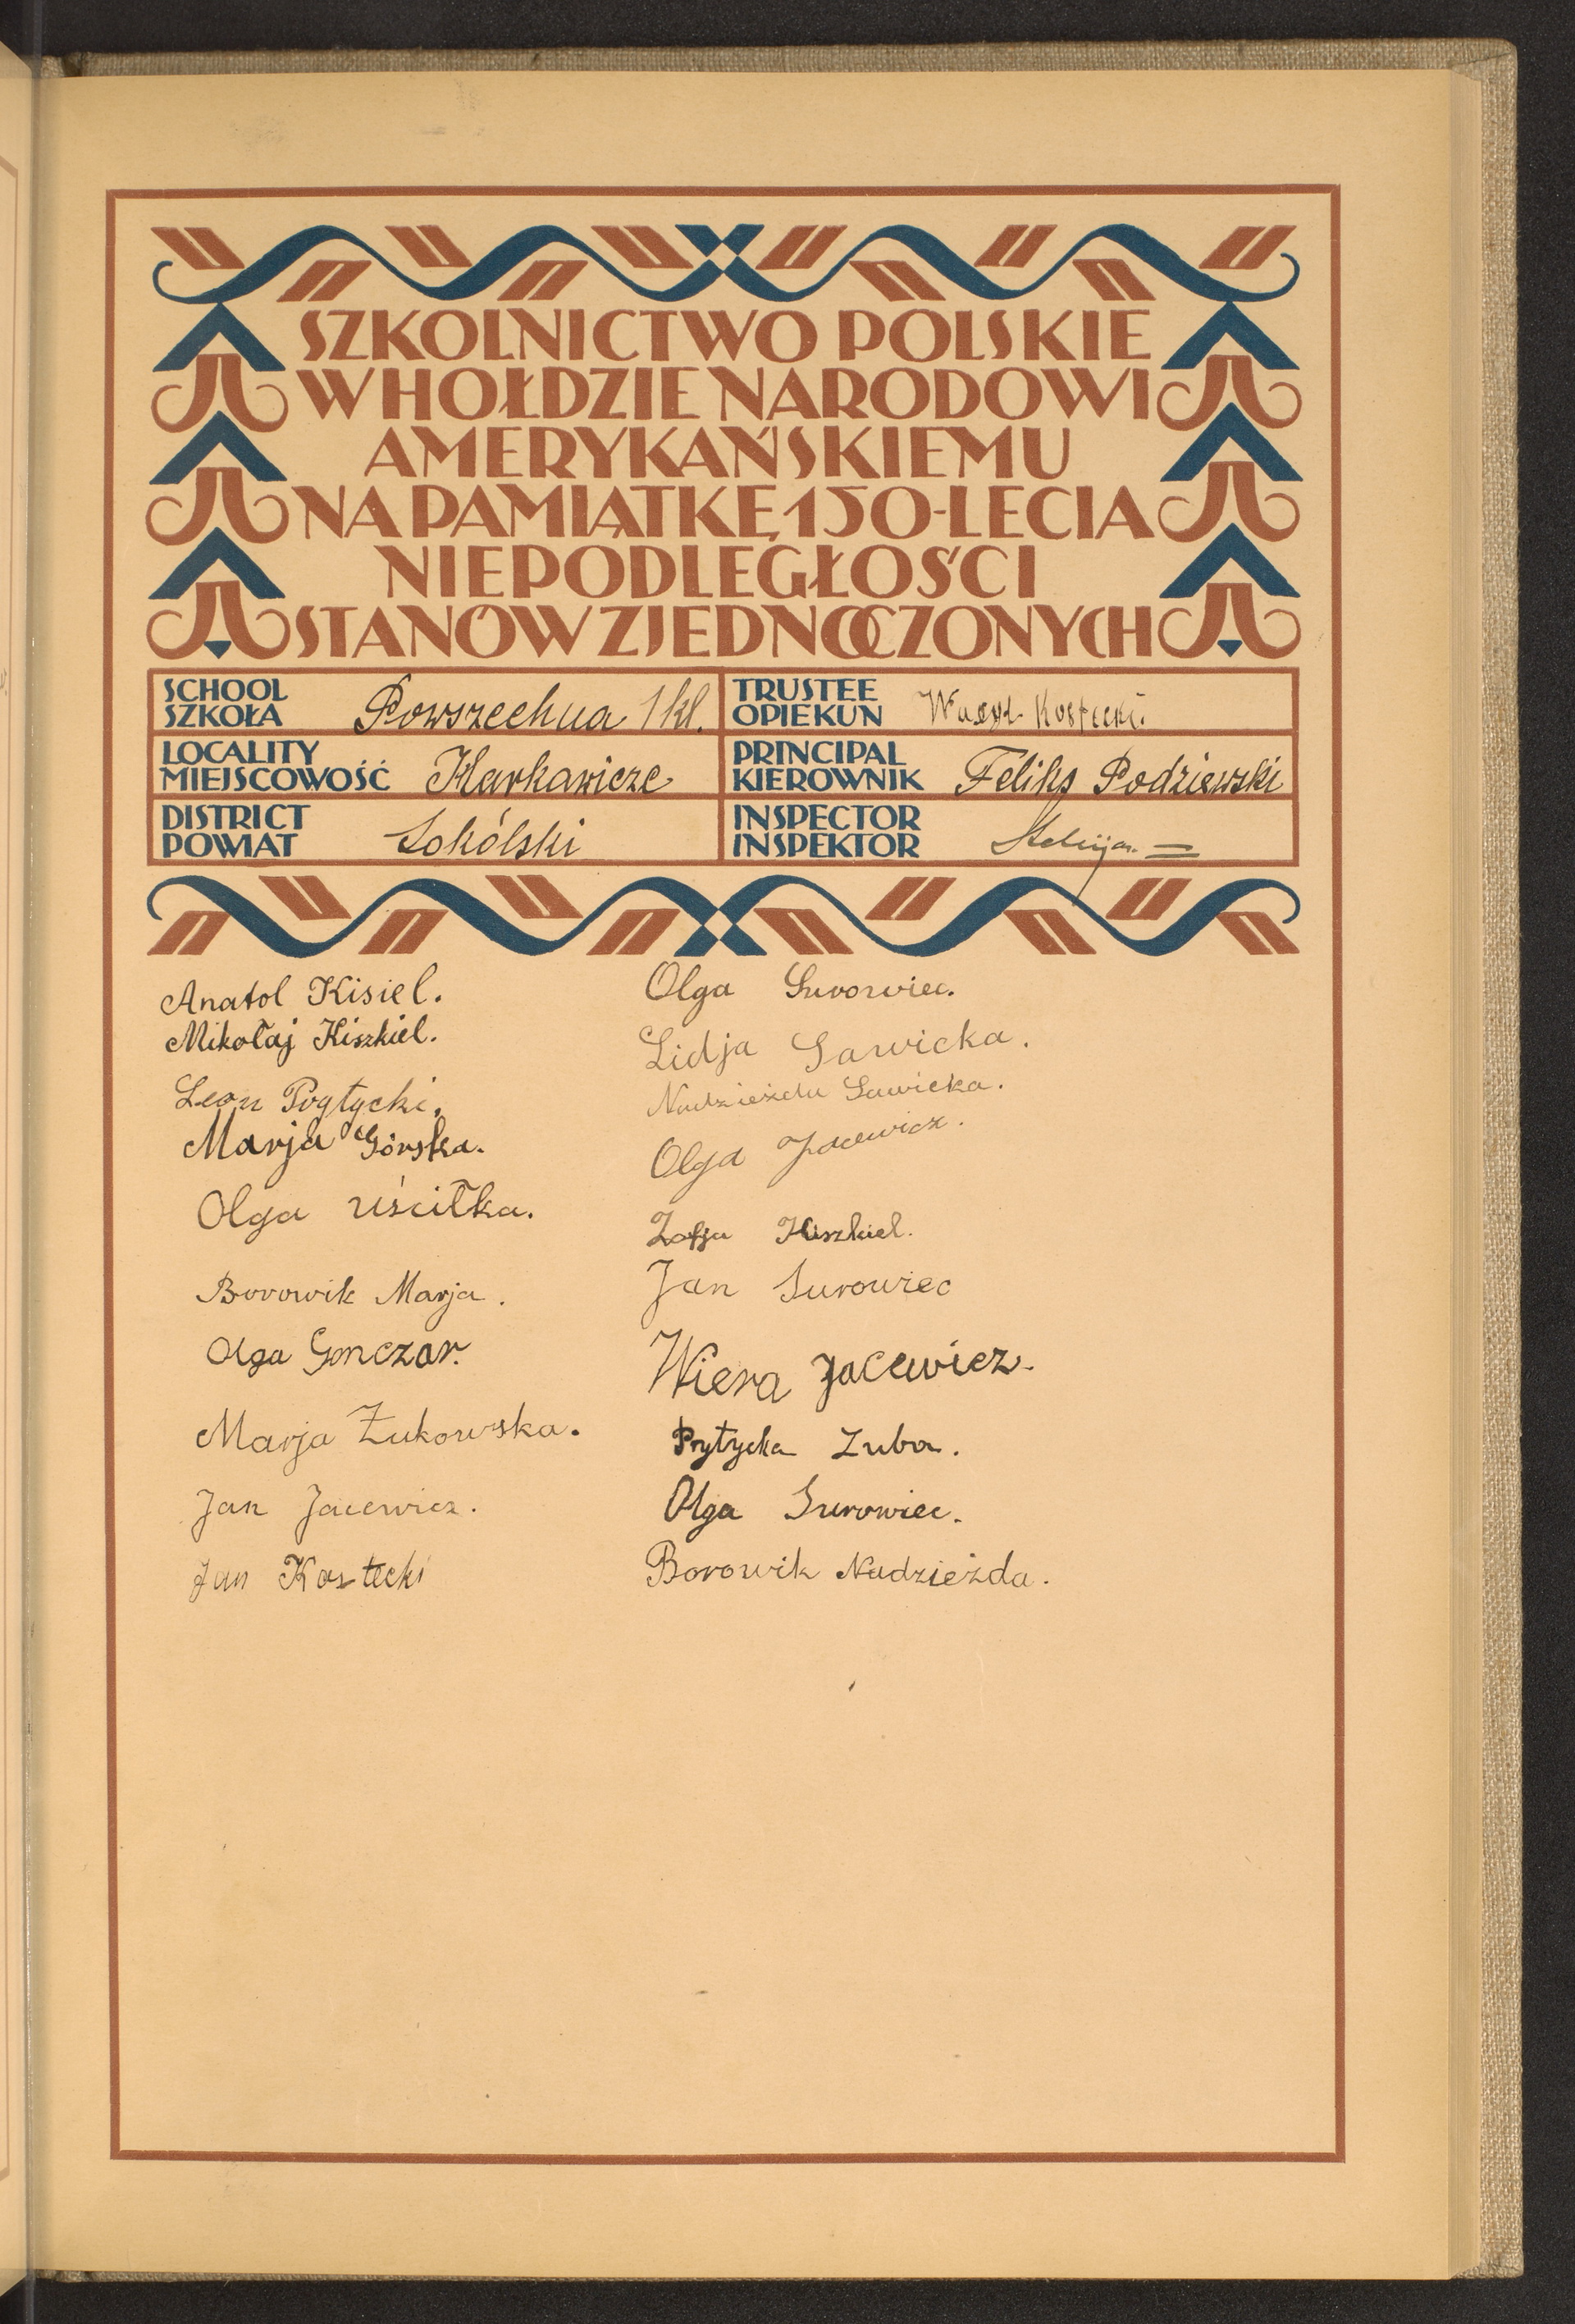 SZKOLNICTWO POLSKIE
W HOŁDZIE NARODOWI
AMERYKAŃSKIEMU
NA PAMIĄTKĘ 150-LECIA
NIEPODLEGŁOŚCI
STANÓW ZJEDNOCZONYCH
SCHOOL
SZKOŁA Powszechna 1 kl.
TRUSTEE
OPIEKUN Kostecki.
LOCALITY
MIEJSCOWOŚĆ Harkawicze
PRINCIPAL
KIEROWNIK Feliks Podziewski
DISTRICT
POWIAT Sokólski
INSPECTOR
INSPEKTOR
Anatol Kisiel.
Mikołaj Kiszkiel.
Leon Prytycki.
Marja Górska.
Olga Uściłka.
Borowik Marja.
Olga Gonczar.
Marja Żukowska.
Jan Jacewicz.
Jan Kostecki
Olga Surowiec.
Lidja Sawicka.
Nadzieżda Sawicka.
Olga Jacewicz.
Zofja Kiszkiel.
Jan Surowiec
Wiera Jacewicz.
Prytycka Luba.
Olga Surowiec.
Borowik Nadzieżda.